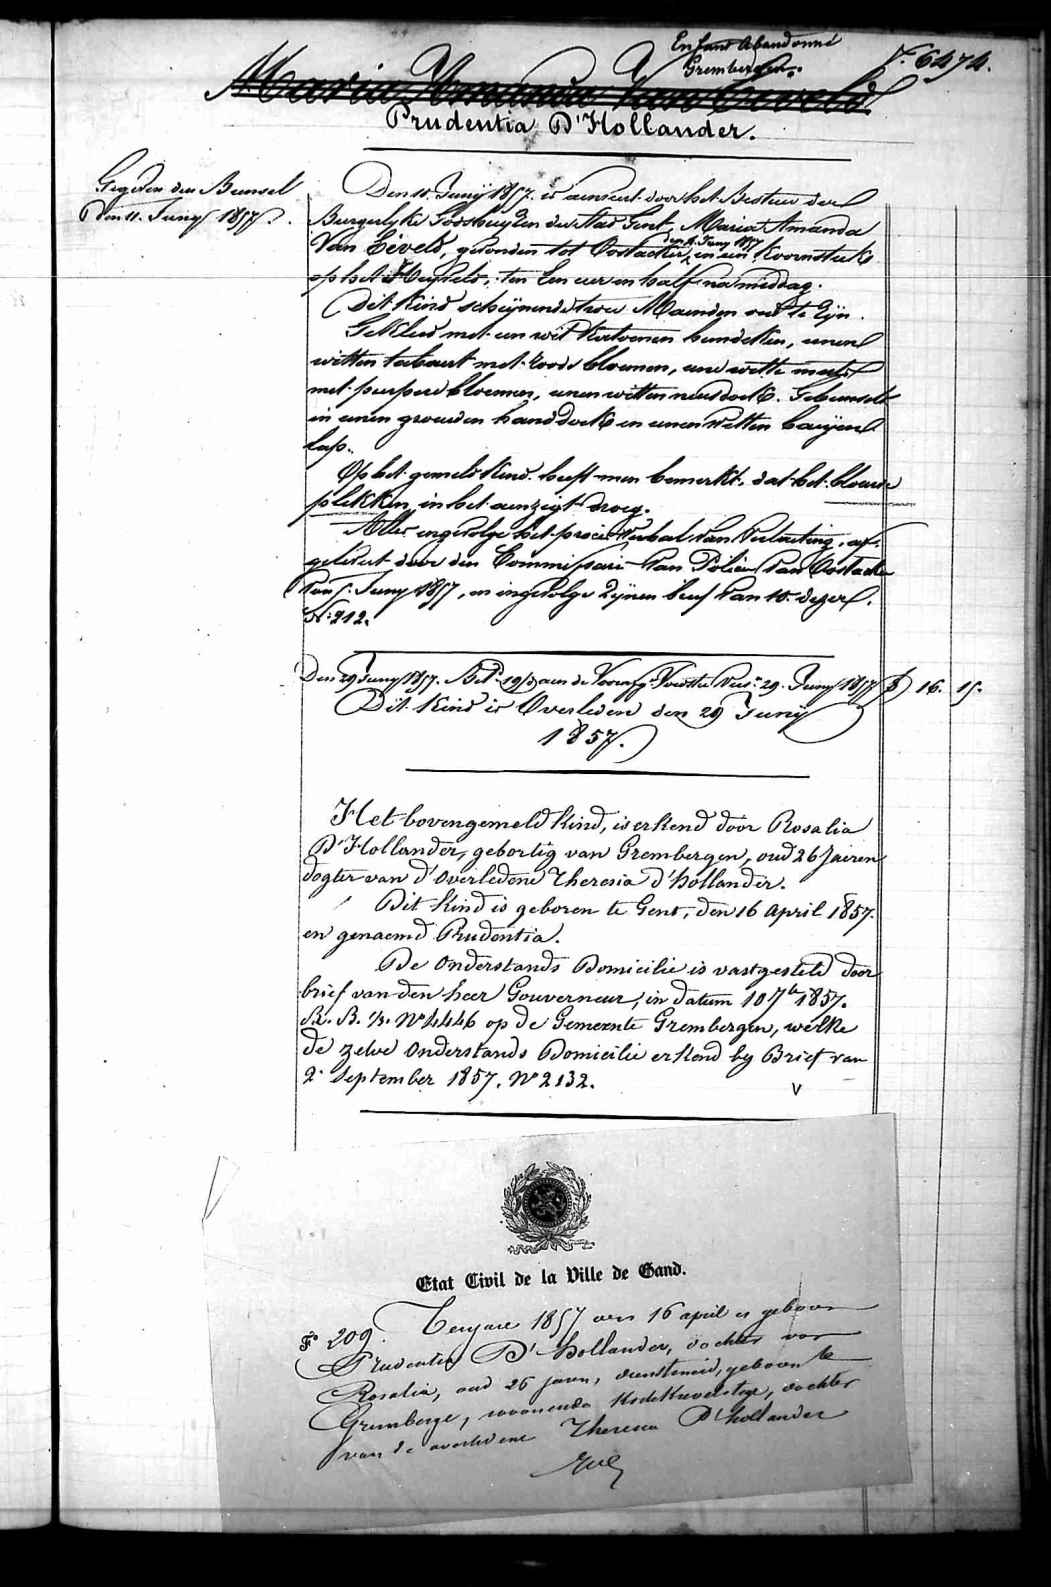 Enfant Abandonné
Grembergen.
N. 6474.
Maria Amanda Van Eeveld
Prudentia D'Hollander.
Gegeven den Bunsel
Den 11. Juny 1857.
Den 10. Juny 1857. is aenveert door het Bestuer der
Burgerlyke Godshuyzen der Stad Gent, Maria Amanda
Van Eeveld, gevonden tot Oostacker, den 5. Juny 1857 in een Koornstuk
op het Heyveld, ten Een uer en half na middag.
Dit Kind schynende twee Maenden oud te zyn.
Gekleed met een wit Kattoenen hemdeken, eenen
witten tabaert met roode bloemen, eene witte muts
met purpere bloemen, eenen witten neusdoek. Gebunselt
in eenen grouwen handdoek en eenen witten baeyen
lap.
Op het gemeld Kind heeft men bemerkt, dat het blauwe
plekken in het aenzigt droeg.
Alles ingevolge het proces Verbael van Verlaeting, af-
gelevert door den Commissaris van Policie van Oostacker
van 5. Juny 1857, en ingevolge Zynen brief van 10. dezer.
N. 212.
Den 29 Juny 1857.
29. Juny 1857
16. 15.
Dit Kind is Overleden den 29 Juny
1857.
Het bovengemeld Kind, is erkend door Rosalia
D'Hollander, gebortig van Grembergen, oud 26 Jaeren
dogter van d'Overledene Theresia d'hollander.
Dit Kind is geboren te Gent, den 16 April 1857.
en genaemd Prudentia.
De Onderstands Domicilie is vastgesteld door
brief van den heer Gouverneur, in datum 10 7ber 1857.
N° 4446 op de Gemeente Grembergen, welke
de zelve Onderstands Domicilie erkend by Brief van
2. September 1857. N° 2132.
Etat Civil de la Ville de Gand.
F° 209. Ten jare 1857 den 16 april is geboren
Prudentia D'hollander, dochter van
Rosalia, oud 26 jaren, dienstmeid, geboren te
Grembergen, woonende, dochter
van de overledene Theresia D'hollander